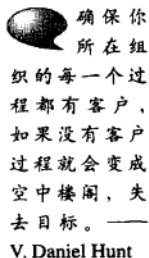 确保你
所在组
织的每一个过
程都有客户，
如果没有客户
过程就会变成
空中楼阁，失
去目标。——
V. Daniel Hunt